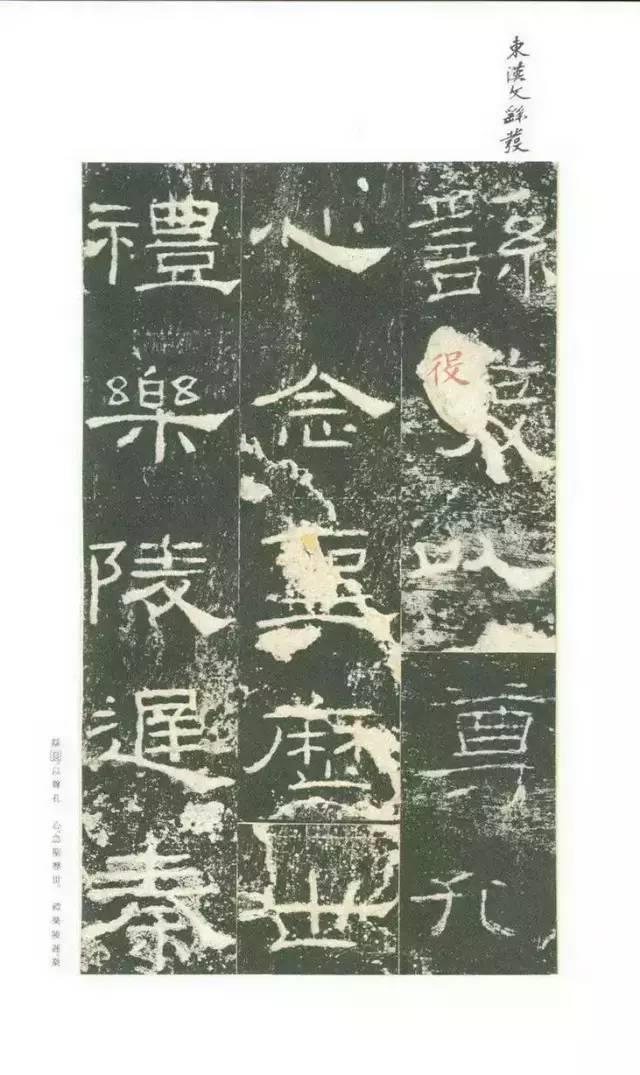 東漢文繇發
繇發以尊孔
役
心念聖歷世
禮樂陵遲秦
繇發以尊孔 心。念聖歷世。禮樂陵遲。秦